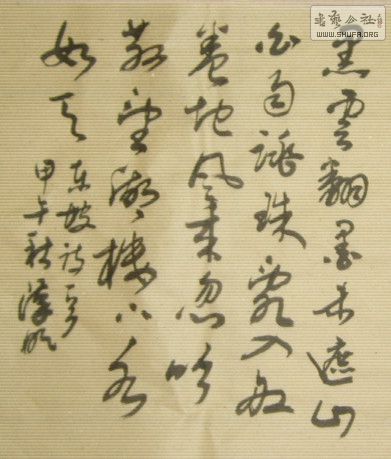 黑雲翻墨未遮山
白雨跳珠亂入船
卷地風來忽吹
散望湖樓下水
如天
东坡诗
甲午秋
書藝公社
WWW.SHUFA.ORG